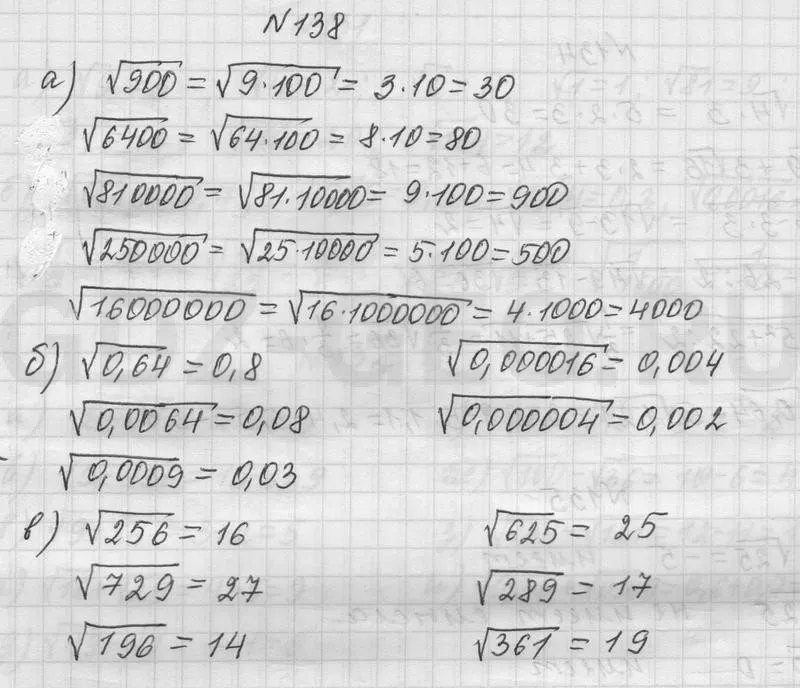 №138
а) √900 = √9·100 = 3·10=30
√6400 = √64·100 = 8·10=80
√810000 = √81·10000 = 9·100=900
√250000 = √25·10000 = 5·100=500
√16000000 = √16·1000000 = 4·1000=4000
б) √0,64 = 0,8 √0,000016 = 0,004
√0,0064 = 0,08 √0,000004 = 0,002
√0,0009 = 0,03
в) √256 = 16 √625 = 25
√729 = 27 √289 = 17
√196 = 14 √361 = 19